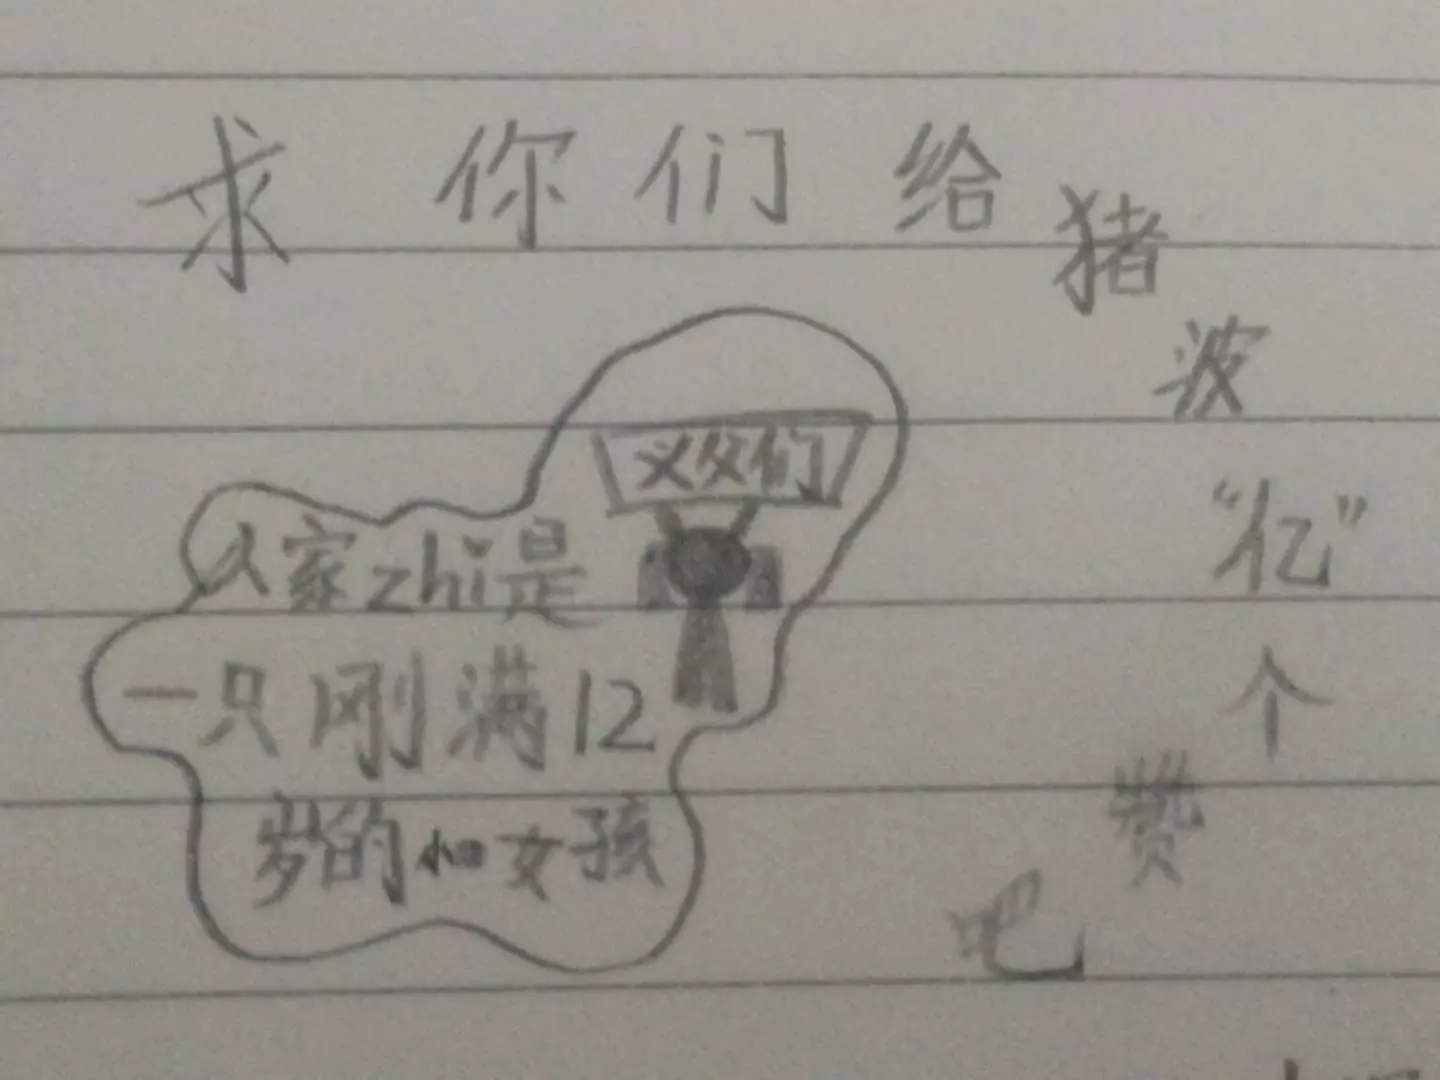 求你们给猪波“亿”个赞吧
义父们
人家zhi是
一只刚满12
岁的小女孩